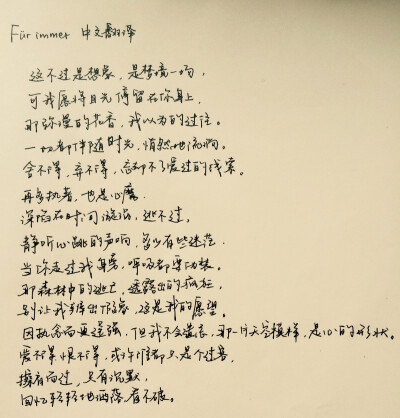 Für immer 中文翻译
这不过是想象，是梦境一场，
可我愿将目光停留在你身上，
那弥漫的花香，我以为的过往。
一切都伴随时光，悄然地流淌。
舍不得，弃不得，忘却不了爱过的线索。
再多执着，也是心魔。
深陷在时间漩涡，逃不过，
静听心跳的声响，多少有些迷茫
当你走过我身旁，呼吸都要伪装。
那森林中的逃亡，透露出的疯狂，
别让我露出假象，这是我的愿望。
因执念而更逞强，但我不会遗忘，那一片天空模样，是心的形状。
爱不得恨不得，或许谁都只是个过客，
擁有而过，只有沉默，
回忆轻轻地洒落，看不破。